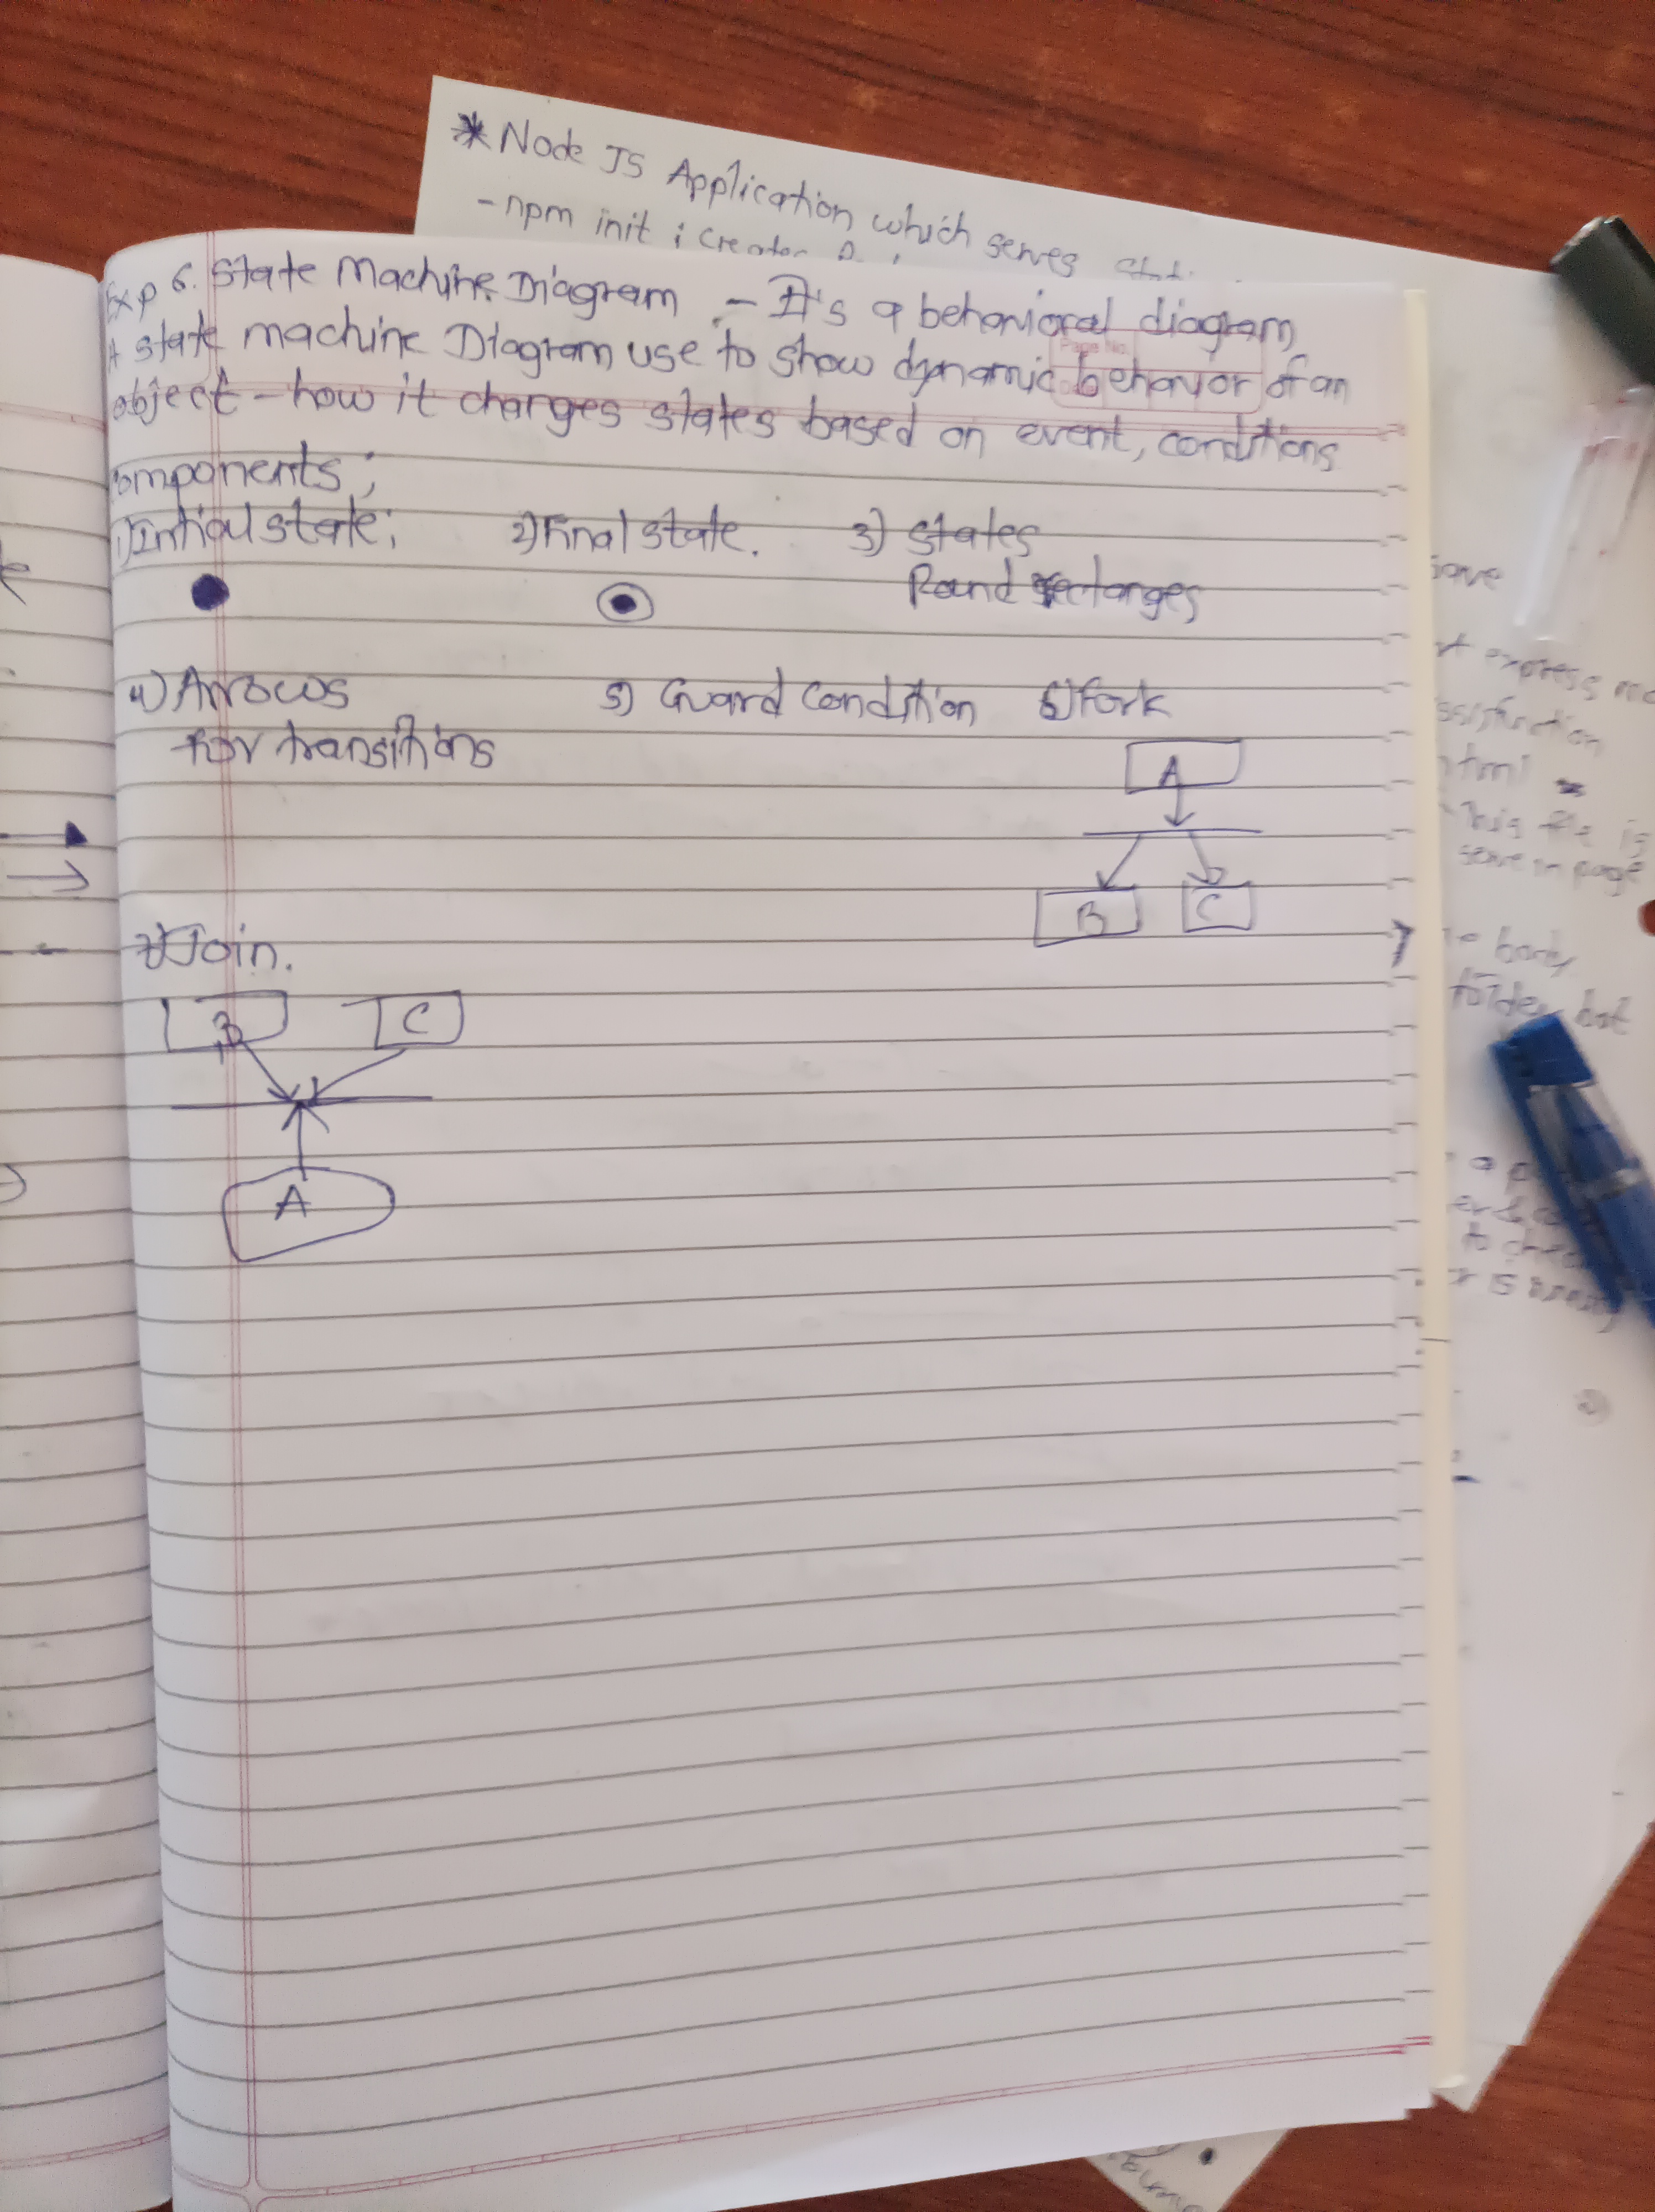 * Node JS Application which serves
- npm init :
Exp 6. State Machine Diagram :- It's a behavioral diagram,
A state machine Diagram use to show dynamic behavior of an
object - how it changes states based on event, conditions
Page No.
components;
1) Intial state; 2) Final state. 3) states
Round rectanges
4) Arrows 5) Guard condition 6) Fork
for transitions
A
B C
7) Join.
B C
A
save
express
function
html
This file is
serve in page
body
folder but